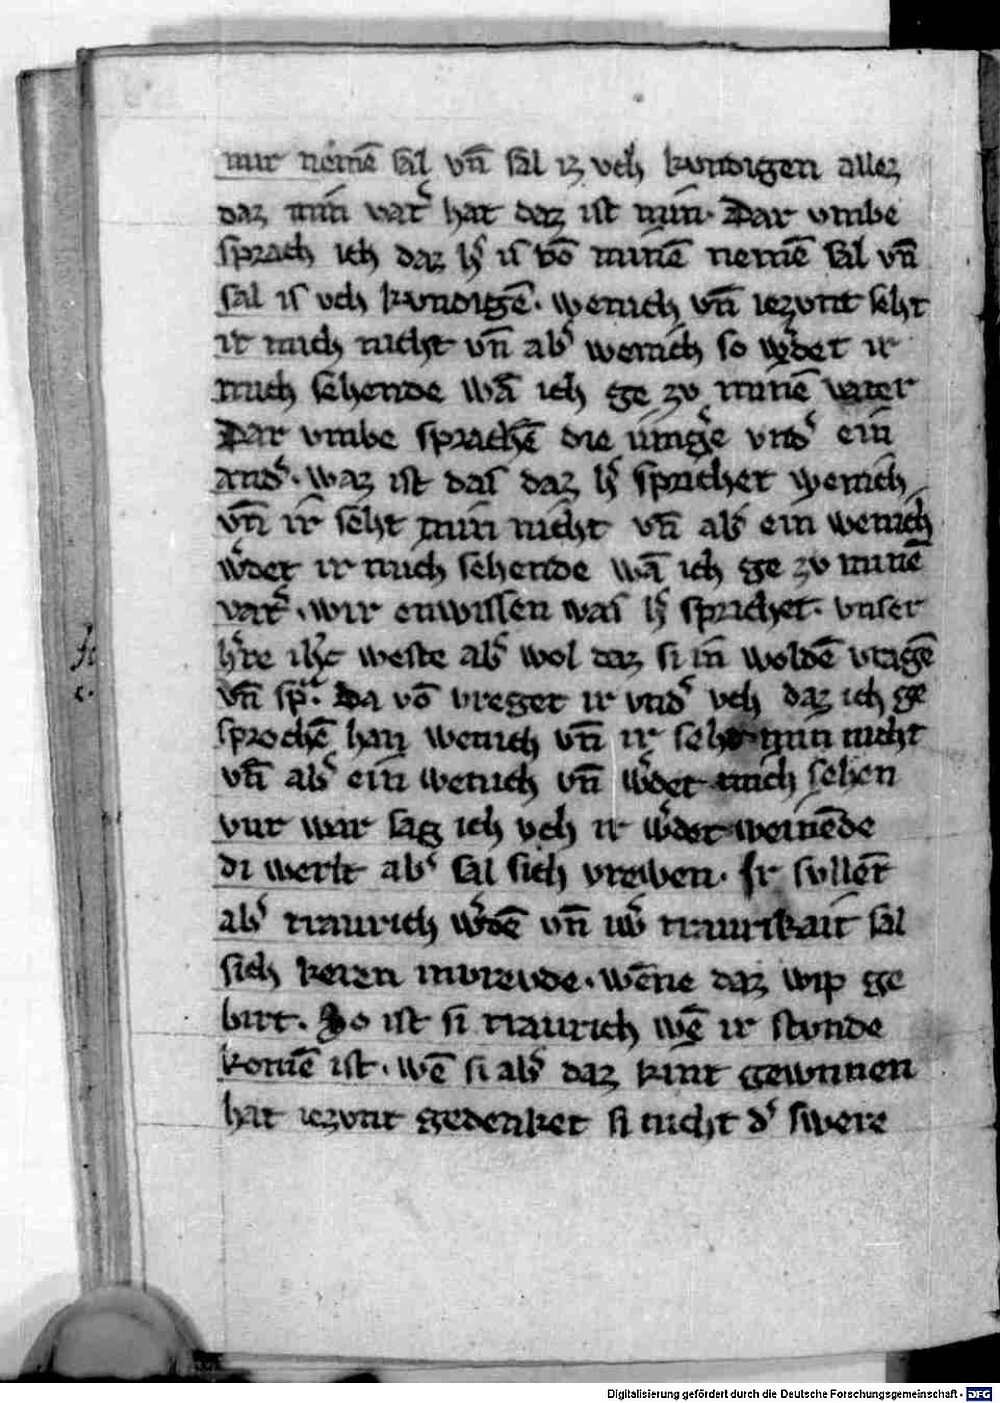 mir nemē sal vn̄ sal iz vch kvndigen allez
daz min vatˀ hat daz ist min. Dar vmbe
sprach ich daz hˀ is vō minē nemē sal vn̄
sal is vch kvndigē. wenich vn̄ iezvnt seht
ir mich nicht vn̄ abˀ wenich so wˀdet ir
mich sehende wā ich ge zv minē vater
Dar vmbe sprachē die iungˀe vndˀ ein
andˀ. waz ist das daz hˀ sprichet wenich
vn̄ ir seht min nicht vn̄ abˀ ein wenich
wˀdet ir mich sehende wā ich ge zv minē
vatˀ. wir enwissen was hˀ sprichet. vnser
hˀre ihc weste abˀ wol daz si in woldē vragē
vn̄ spͣch. Da vō vreget ir vndˀ vch daz ich ge
sprochē han wenich vn̄ ir seht min nicht
vn̄ abˀ ein wenich vn̄ wˀdet mich sehen
vur war sag ich vch ir wˀdet weinēde
di werlt abˀ sal sich vrewen. Ir svllet
abˀ traurich wˀdē vn̄ uwˀ traurikait sal
sich keren invrevde. wēne daz wip ge
birt. So ist si traurich wē ir stvnde
komē ist. wē si abˀ daz kint gewnnen
hat iezvnt gedenket si nicht dˀ swere
Digitalisierung gefördert durch die Deutsche Forschungsgemeinschaft - DFG